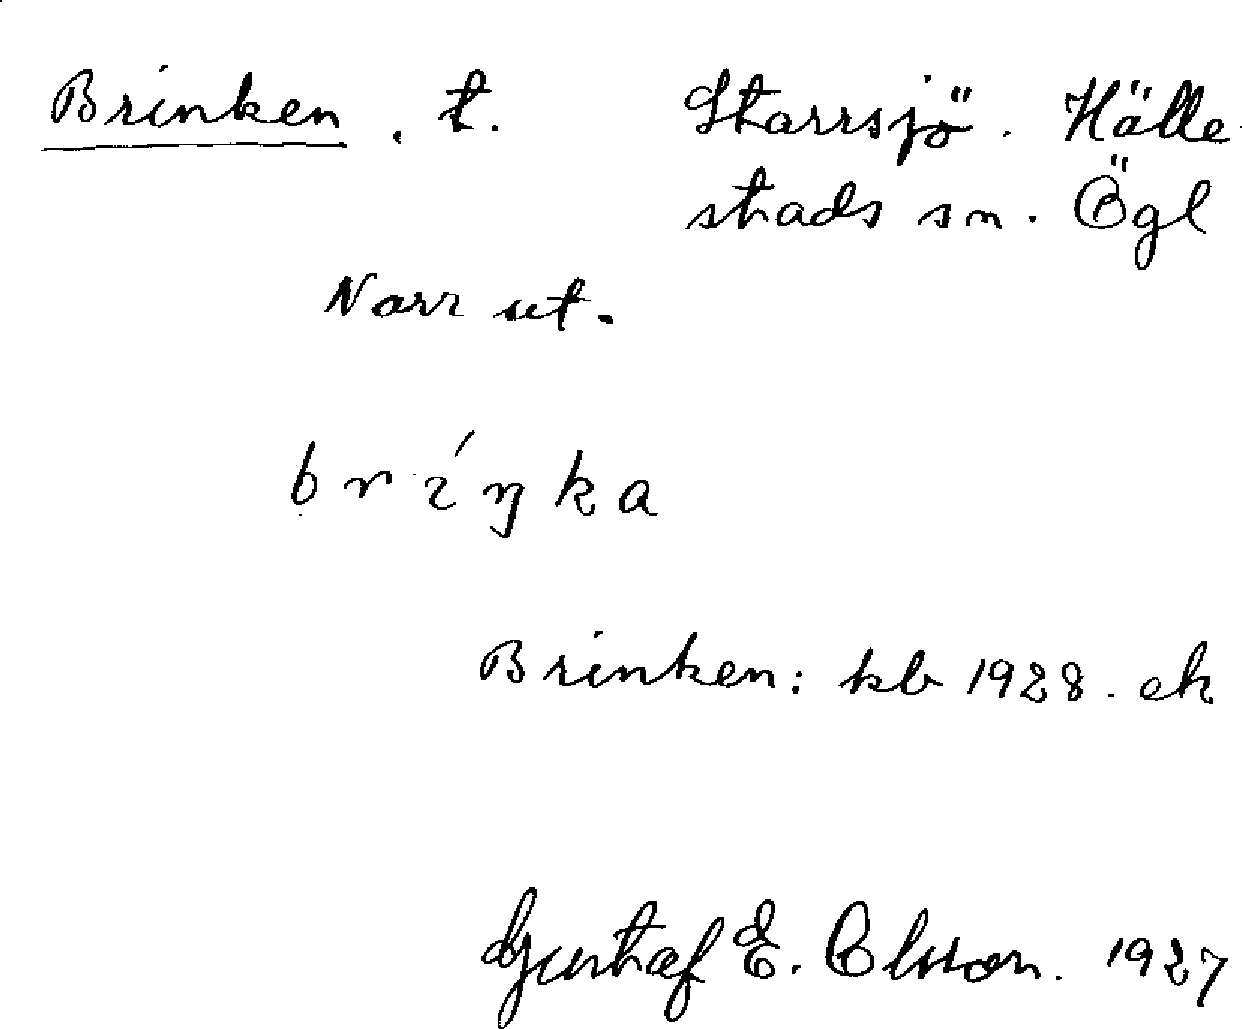 Brinken. t. Starrsjö. Hälle
stads sn. Ögl
Norr ut.
bríŋka
Brinken: kb 1928. ek
Gustaf E. Olsson. 1927